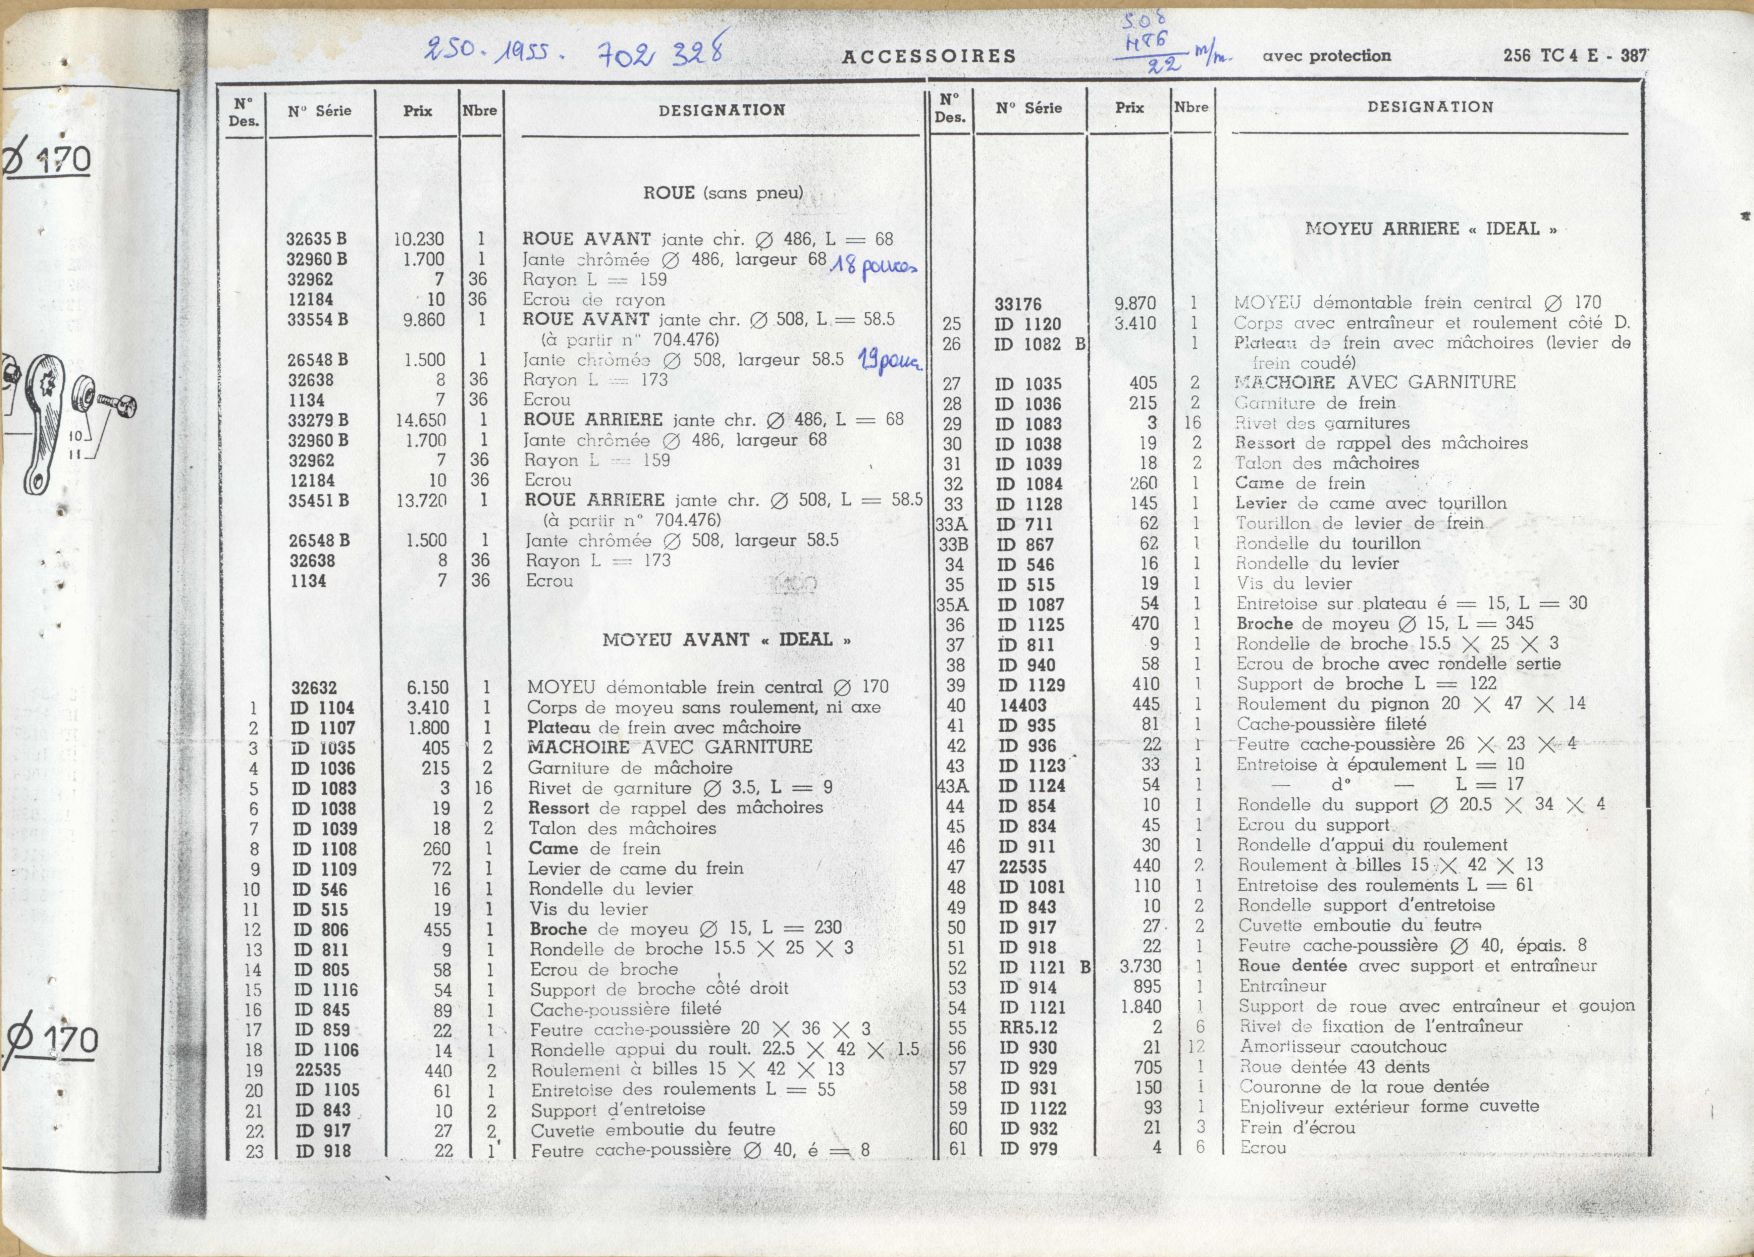 250.1955. 702 328
ACCESSOIRES
508
486
22 m/m.
avec protection
256 TC 4 E - 387
Ø 170
10
11
Ø 170
N° Des. N° Série Prix Nbre DESIGNATION
ROUE (sans pneu)
32635 B 10.230 1 ROUE AVANT jante chr. Ø 486, L = 68
32960 B 1.700 1 Jante chrômée Ø 486, largeur 68 18 pouces
32962 7 36 Rayon L = 159
12184 10 36 Ecrou de rayon
33554 B 9.860 1 ROUE AVANT jante chr. Ø 508, L = 58.5
(à partir n° 704.476)
26548 B 1.500 1 Jante chrômée Ø 508, largeur 58.5 19 pouc.
32638 8 36 Rayon L = 173
1134 7 36 Ecrou
33279 B 14.650 1 ROUE ARRIERE jante chr. Ø 486, L = 68
32960 B 1.700 1 Jante chrômée Ø 486, largeur 68
32962 7 36 Rayon L = 159
12184 10 36 Ecrou
35451 B 13.720 1 ROUE ARRIERE jante chr. Ø 508, L = 58.5
(à partir n° 704.476)
26548 B 1.500 1 Jante chrômée Ø 508, largeur 58.5
32638 8 36 Rayon L = 173
1134 7 36 Ecrou
MOYEU AVANT « IDEAL »
32632 6.150 1 MOYEU démontable frein central Ø 170
1 ID 1104 3.410 1 Corps de moyeu sans roulement, ni axe
2 ID 1107 1.800 1 Plateau de frein avec mâchoire
3 ID 1035 405 2 MACHOIRE AVEC GARNITURE
4 ID 1036 215 2 Garniture de mâchoire
5 ID 1083 3 16 Rivet de garniture Ø 3.5, L = 9
6 ID 1038 19 2 Ressort de rappel des mâchoires
7 ID 1039 18 2 Talon des mâchoires
8 ID 1108 260 1 Came de frein
9 ID 1109 72 1 Levier de came du frein
10 ID 546 16 1 Rondelle du levier
11 ID 515 19 1 Vis du levier
12 ID 806 455 1 Broche de moyeu Ø 15, L = 230
13 ID 811 9 1 Rondelle de broche 15.5 X 25 X 3
14 ID 805 58 1 Ecrou de broche
15 ID 1116 54 1 Support de broche côté droit
16 ID 845 89 1 Cache-poussière fileté
17 ID 859 22 1 Feutre cache-poussière 20 X 36 X 3
18 ID 1106 14 1 Rondelle appui du roult. 22.5 X 42 X 1.5
19 22535 440 2 Roulement à billes 15 X 42 X 13
20 ID 1105 61 1 Entretoise des roulements L = 55
21 ID 843 10 2 Support d'entretoise
22 ID 917 27 2 Cuvette emboutie du feutre
23 ID 918 22 1 Feutre cache-poussière Ø 40, é = 8
N° Des. N° Série Prix Nbre DESIGNATION
MOYEU ARRIERE « IDEAL »
33176 9.870 1 MOYEU démontable frein central Ø 170
25 ID 1120 3.410 1 Corps avec entraîneur et roulement côté D.
26 ID 1082 B 1 Plateau de frein avec mâchoires (levier de
frein coudé)
27 ID 1035 405 2 MACHOIRE AVEC GARNITURE
28 ID 1036 215 2 Garniture de frein
29 ID 1083 3 16 Rivet des garnitures
30 ID 1038 19 2 Ressort de rappel des mâchoires
31 ID 1039 18 2 Talon des mâchoires
32 ID 1084 260 1 Came de frein
33 ID 1128 145 1 Levier de came avec tourillon
33A ID 711 62 1 Tourillon de levier de frein
33B ID 867 62 1 Rondelle du tourillon
34 ID 546 16 1 Rondelle du levier
35 ID 515 19 1 Vis du levier
35A ID 1087 54 1 Entretoise sur plateau é = 15, L = 30
36 ID 1125 470 1 Broche de moyeu Ø 15, L = 345
37 ID 811 9 1 Rondelle de broche 15.5 X 25 X 3
38 ID 940 58 1 Ecrou de broche avec rondelle sertie
39 ID 1129 410 1 Support de broche L = 122
40 14403 445 1 Roulement du pignon 20 X 47 X 14
41 ID 935 81 1 Cache-poussière fileté
42 ID 936 22 1 Feutre cache-poussière 26 X 23 X 4
43 ID 1123 33 1 Entretoise à épaulement L = 10
43A ID 1124 54 1 — d° — L = 17
44 ID 854 10 1 Rondelle du support Ø 20.5 X 34 X 4
45 ID 834 45 1 Ecrou du support
46 ID 911 30 1 Rondelle d'appui du roulement
47 22535 440 2 Roulement à billes 15 X 42 X 13
48 ID 1081 110 1 Entretoise des roulements L = 61
49 ID 843 10 2 Rondelle support d'entretoise
50 ID 917 27 2 Cuvette emboutie du feutre
51 ID 918 22 1 Feutre cache-poussière Ø 40, épais. 8
52 ID 1121 B 3.730 1 Roue dentée avec support et entraîneur
53 ID 914 895 1 Entraîneur
54 ID 1121 1.840 1 Support de roue avec entraîneur et goujon
55 RR5.12 2 6 Rivet de fixation de l'entraîneur
56 ID 930 21 12 Amortisseur caoutchouc
57 ID 929 705 1 Roue dentée 43 dents
58 ID 931 150 1 Couronne de la roue dentée
59 ID 1122 93 1 Enjoliveur extérieur forme cuvette
60 ID 932 21 3 Frein d'écrou
61 ID 979 4 6 Ecrou